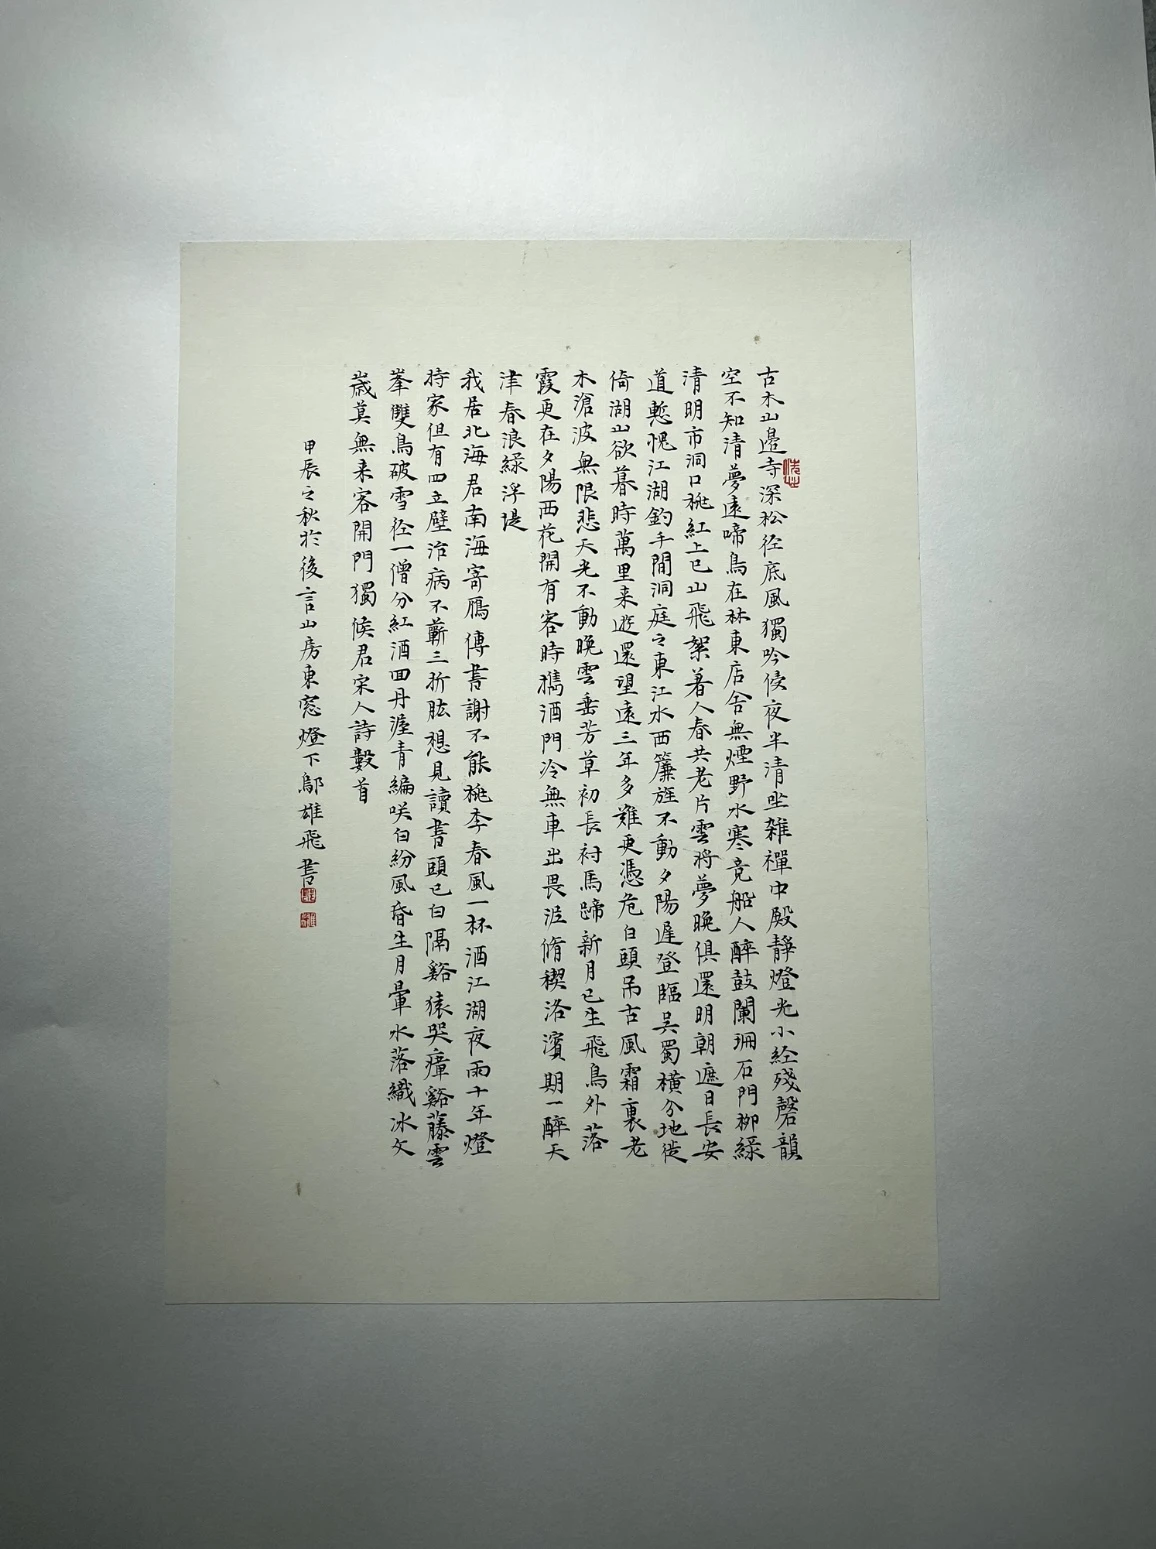 古木山邊寺深松徑底風獨吟侵夜半清坐雜禪中殿靜燈光小經殘磬韻
空不知清夢遠啼鳥在林東店舍無煙野水寒竟船人醉鼓闌珊石門柳綠
清明市洞口桃紅上巳山飛絮著人春共老片雲將夢晚俱還明朝遮日長安
道慙愧江湖釣手閒洞庭之東江水西簾旌不動夕陽遲登臨吳蜀橫分地徙
倚湖山欲暮時萬里来遊還望遠三年多難更憑危白頭吊古風霜裏老
木滄波無限悲天光不動晚雲垂芳草初長衬馬蹄新月已生飛鳥外落
霞更在夕陽西花開有客時攜酒門冷無車出畏泥脩禊洛濱期一醉天
津春浪綠浮堤
我居北海君南海寄鴈傳書謝不能桃李春風一杯酒江湖夜雨十年燈
持家但有四立壁治病不蘄三折肱想見讀書頭已白隔谿猿哭瘴谿藤雲
峯雙鳥破雪徑一僧分紅酒回丹渥青編咲白紛風昏生月暈水落織冰文
歲莫無来客開門獨候君宋人詩數首
甲辰之秋於後言山房東窓燈下鄔雄飛書